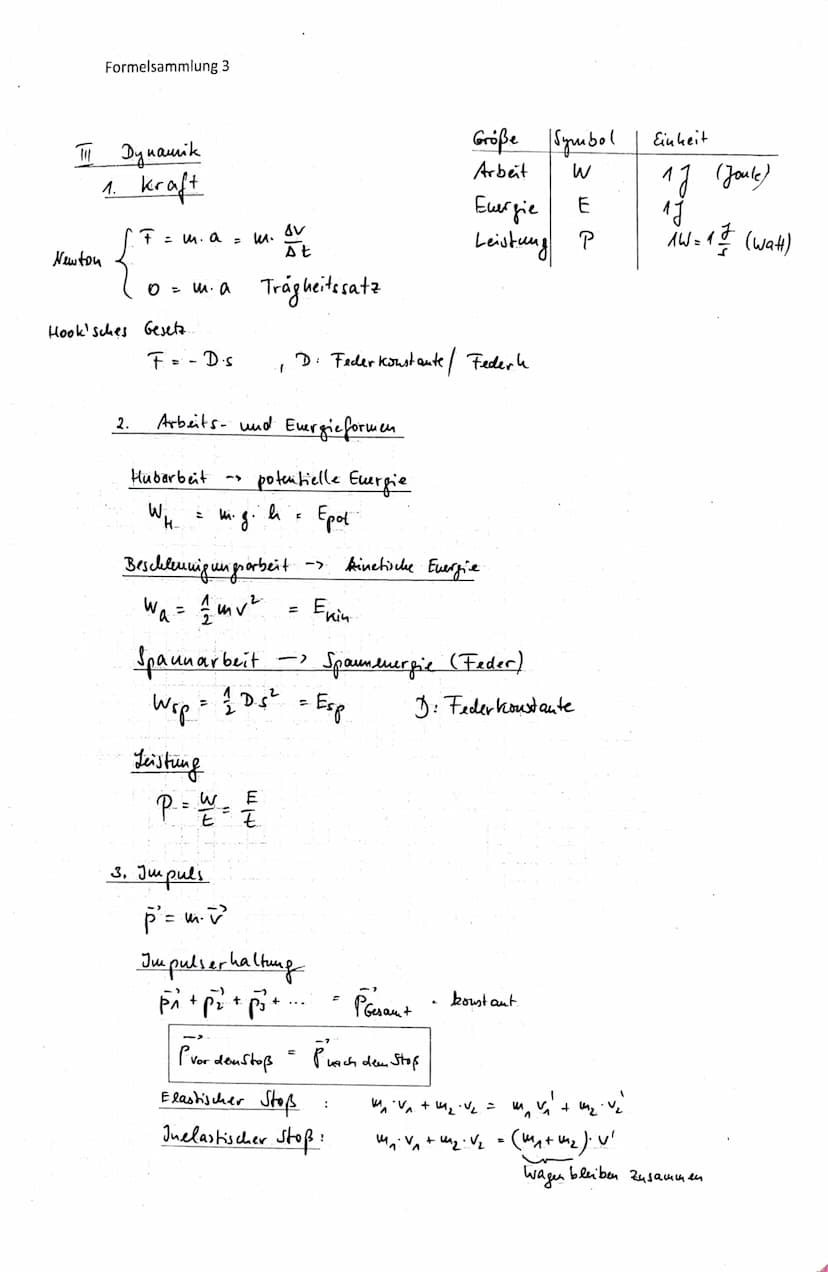 Formelsammlung 3
III Dynamik
1. Kraft
Größe | Symbol | Einheit
Arbeit | W | 1 J (Joule)
Energie | E | 1 J
Leistung | P | 1W = 1 J/s (Watt)
Newton { F = m · a = m · Δv/Δt
0 = m · a Trägheitssatz
Hook'sches Gesetz
F = - D · s , D: Federkonstante / Federh
2. Arbeits- und Energieformen
Hubarbeit → potentielle Energie
W_H = m · g · h = E_pot
Beschleunigungsarbeit → kinetische Energie
W_a = 1/2 m v² = E_kin
Spannarbeit → Spannenergie (Feder)
W_sp = 1/2 D s² = E_sp D: Federkonstante
Leistung
P = W/t = E/t
3. Impuls
p⃗ = m · v⃗
Impulserhaltung
p⃗₁ + p⃗₂ + p⃗₃ + ... = p⃗_Gesamt = konstant
p⃗_vor dem Stoß = p⃗_nach dem Stoß
Elastischer Stoß : m₁ · v₁ + m₂ · v₂ = m₁ v₁' + m₂ · v₂'
Inelastischer Stoß : m₁ · v₁ + m₂ · v₂ = (m₁ + m₂) · v'
Wagen bleiben zusammen